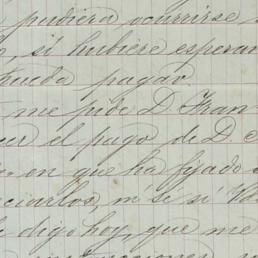 pudiera ocurrirse
si hubiere esperan
pueda pagar.
me pide D. Fran
el pago de D.
en que ha fijado
ciarlos, ni se si V
digo hoy, que me